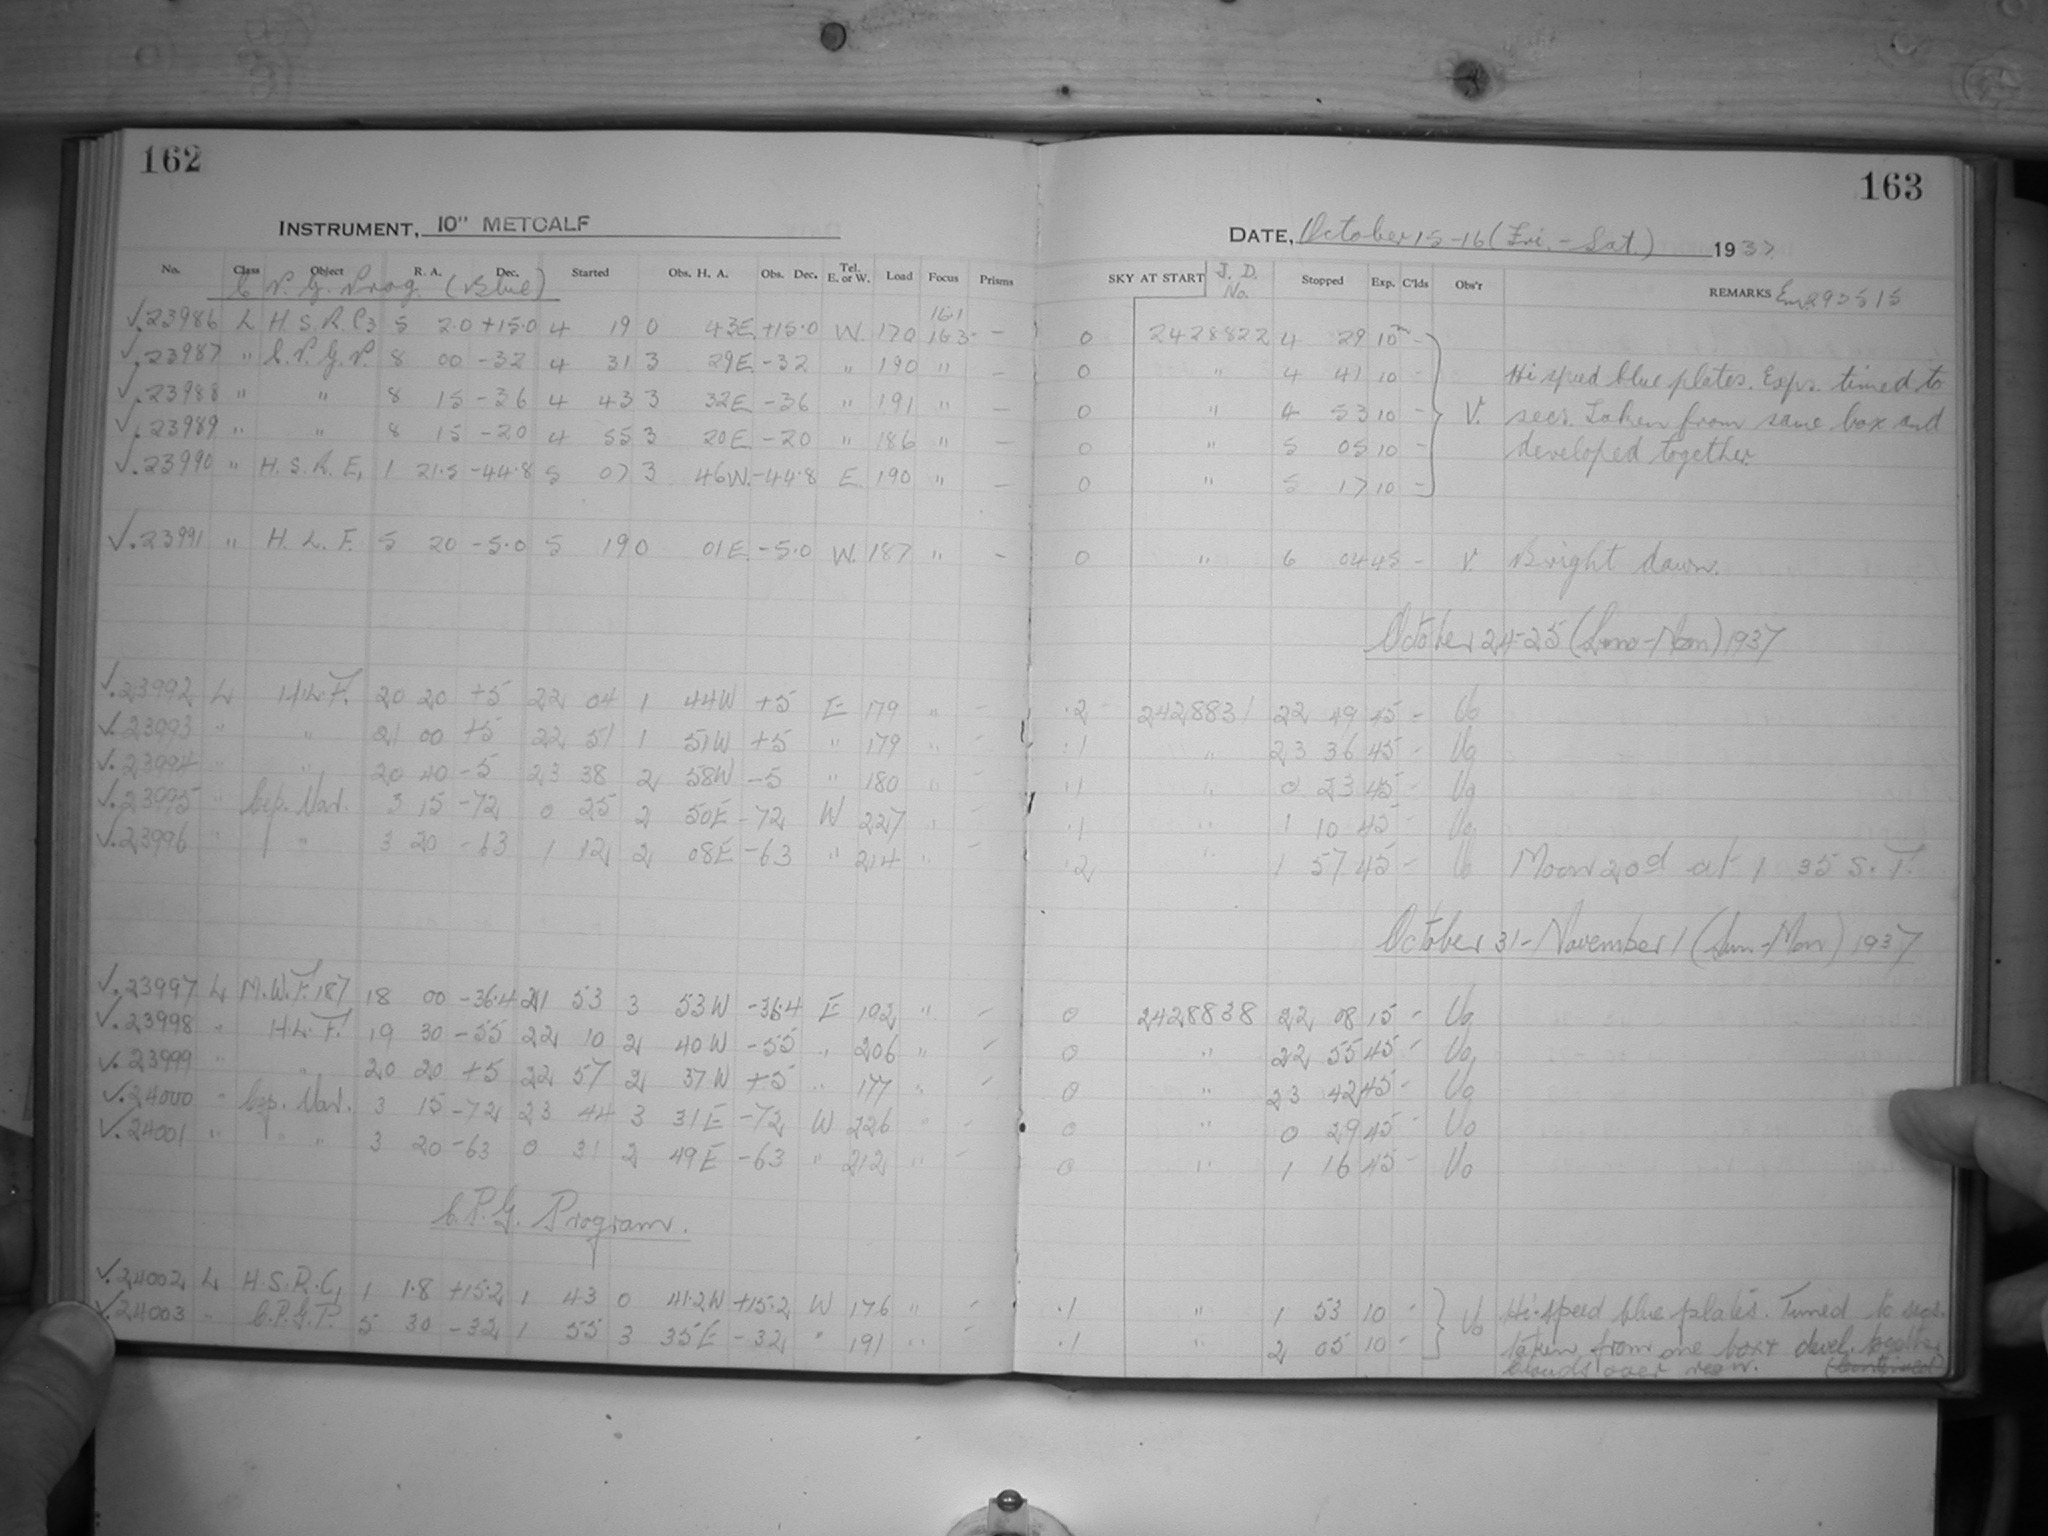 162
INSTRUMENT, 10" METCALF
No. Class Object R. A. Dec. Started Obs. H. A. Obs. Dec. Tel. E. or W. Load Focus Prisms
C. P. G. Prog. (Blue)
16.1
√.23986 L H. S. R. C3 5 2.0 +15.0 4 19 0 43E +15.0 W. 170 16.3 –
√.23987 " C. P. G. P. 8 00 -32 4 31 3 29E -32 " 190 " –
√.23988 " " 8 15 -36 4 43 3 32E -36 " 191 " –
√.23989 " " 8 15 -20 4 55 3 20E -20 " 186 " –
√.23990 " H. S. R. E, 1 21.5 -44.8 5 07 3 46W. -44.8 E. 190 " –
√.23991 " H. L. F. 5 20 -5.0 5 19 0 01E -5.0 W. 187 " –
√.23992 L H.L.F. 20 20 +5 22 04 1 44W +5 E 179 " –
√.23993 " " 21 00 +5 22 51 1 51W +5 " 179 " –
√.23994 " " 20 40 -5 23 38 2 58W -5 " 180 " –
√.23995 " Cep. Var. 3 15 -72 0 25 2 50E -72 W 227 " –
√.23996 " " 3 20 -63 1 12 2 08E -63 " 214 " –
√.23997 L M.W.F. 187 18 00 -36.4 21 53 3 53W -36.4 E 192 " –
√.23998 " H.L.F. 19 30 -55 22 10 2 40W -55 " 206 " –
√.23999 " " 20 20 +5 22 57 2 37W +5 " 177 " –
√.24000 " Cep. Var. 3 15 -72 23 44 3 31E -72 W 226 " –
√.24001 " " " 3 20 -63 0 31 2 49E -63 " 212 " –
C.P.G. Program.
√.24002 L H.S.R.C, 1 1.8 +15.2 1 43 0 41.2W +15.2 W 176 " –
√.24003 " C.P.G.P. 5 30 -32 1 55 3 35E -32 " 191 " –
163
DATE, October 15-16 (Fri. - Sat.) 1937
SKY AT START J. D. No. Stopped Exp. C'lds Obs'r REMARKS
0 2428822 4 29 10m –
0 " 4 41 10 – Hi speed blue plates. Exps. timed to
0 " 4 53 10 – V. secs. Taken from same box and
0 " 5 05 10 – developed together.
0 " 5 17 10 –
0 " 6 04 45 – V. Bright dawn.
October 24-25 (Sun-Mon) 1937
.2 2428831 22 49 45 – Uo
.1 " 23 36 45 – Uo
.1 " 0 23 45 – Uo
.1 " 1 10 45 – Uo
.2 " 1 57 45 – Uo Moon 20d at 1 35 S.T.
October 31-November 1 (Sun-Mon) 1937
0 2428838 22 08 15 – Uo
0 " 22 55 45 – Uo
0 " 23 42 45 – Uo
0 " 0 29 45 – Uo
0 " 1 16 45 – Uo
.1 " 1 53 10 – Uo Hi-speed blue plates. Timed to secs.
.1 " 2 05 10 – taken from one box & devel. together
Clouds over near. (Continued)